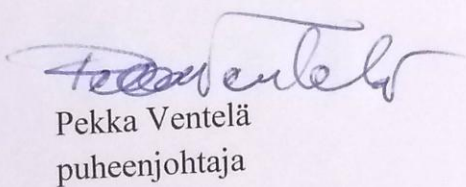 Pekka Ventelä
Pekka Ventelä
puheenjohtaja